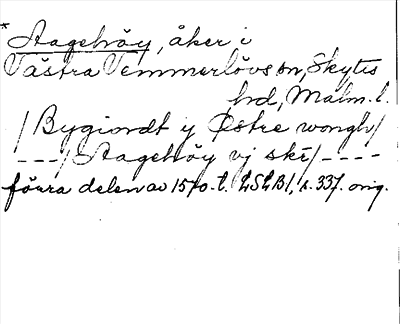 * Aagehöy, åker i
Västra Vemmerlövs sn, Skytts
hd, Malm. l.
/ Bygiordt y Østre wongh/
---/ Aagehöy vj ske/----
förra delen av 1570-t. LSLB1, s. 337. orig.